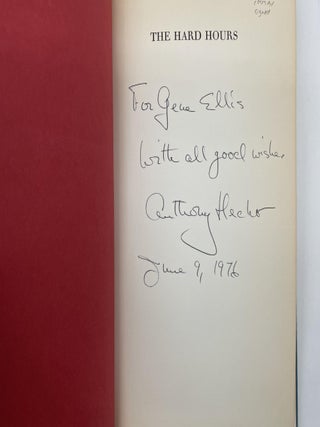 THE HARD HOURS
For Gene Ellis
With all good wishes
Anthony Hecht
June 9, 1976